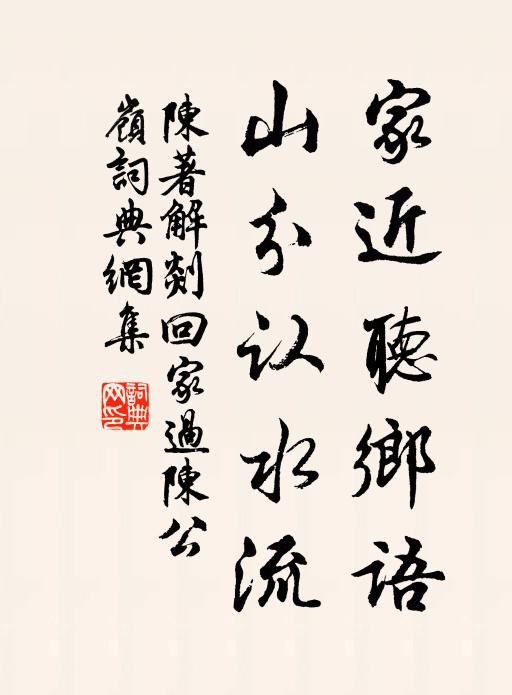 家近聽鄉語
山分认水流
陳著解剡回家過陳公
嶺詞典網集
詞典
网印